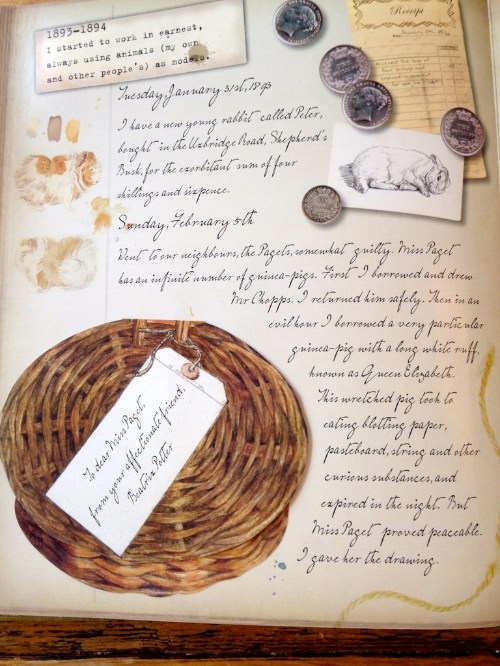 1893-1894
I started to work in earnest,
always using animals (my own
and other people's) as models.
Receipt
Tuesday, January 31st, 1893
I have a new young rabbit called Peter,
bought in the Uxbridge Road, Shepherd's
Bush, for the exorbitant sum of four
shillings and sixpence.
Sunday, February 5th
Went to our neighbours, the Pagets, somewhat guilty. Miss Paget
has an infinite number of guinea-pigs. First I borrowed and drew
Mr Chopps. I returned him safely. Then in an
evil hour I borrowed a very particular
guinea-pig with a long white ruff,
known as Queen Elizabeth.
This wretched pig took to
eating blotting paper,
pasteboard, string and other
curious substances, and
expired in the night. But
Miss Paget proved peaceable.
I gave her the drawing.
To dear Miss Paget,
from your affectionate friend,
Beatrix Potter